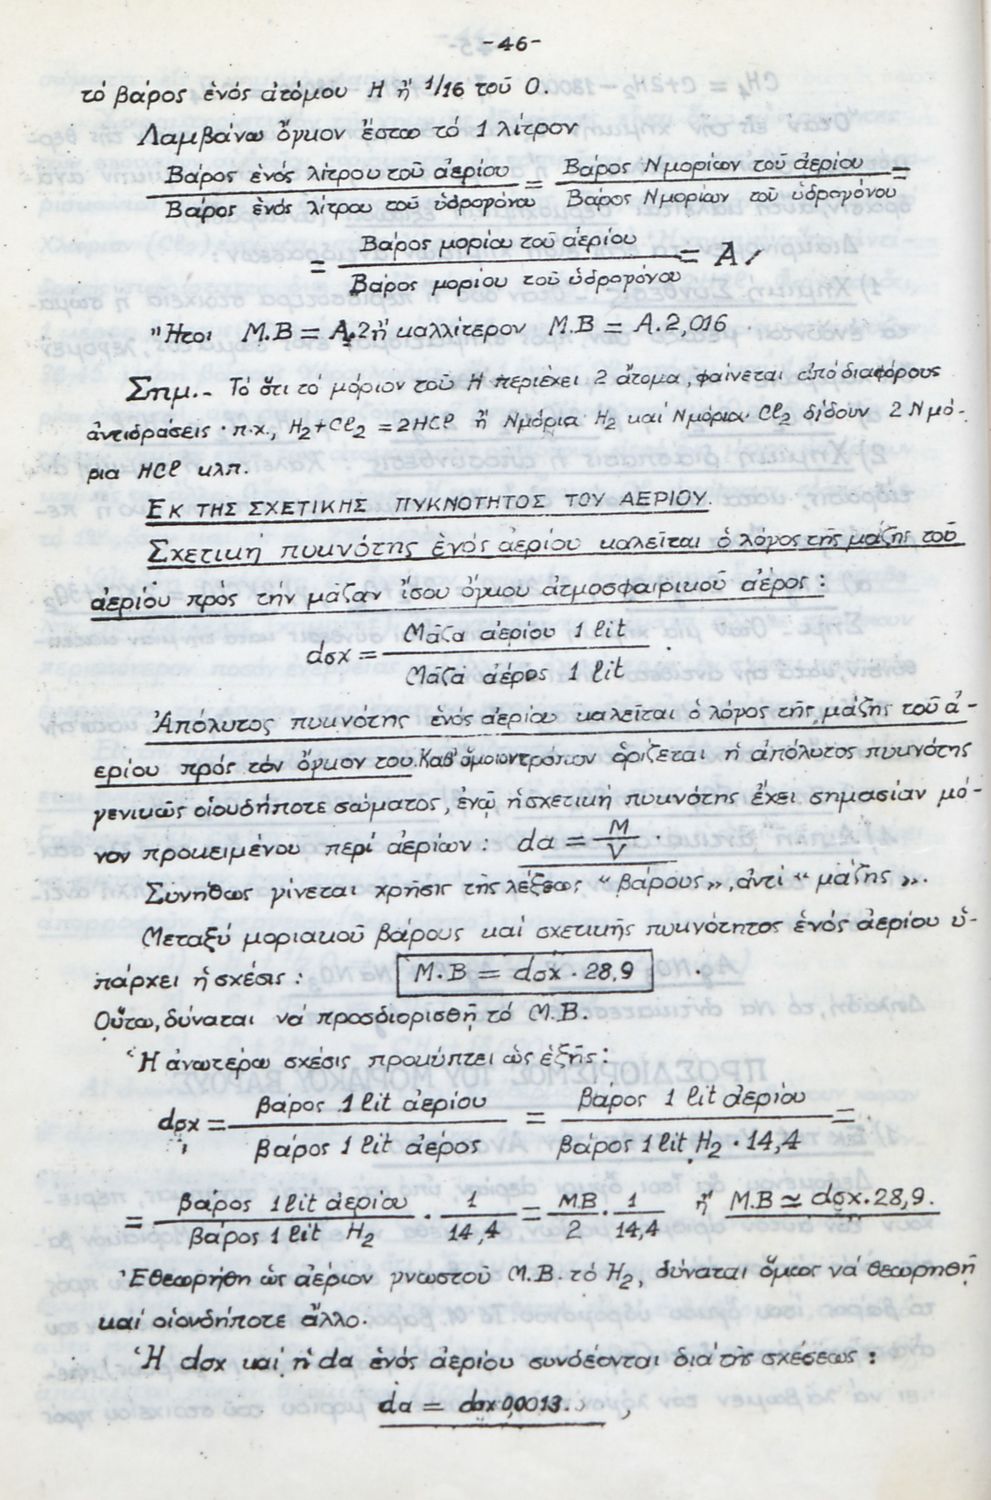 -46-
τό βάρος ἑνός ἀτόμου H ἤ 1/16 τοῦ O.
Λαμβάνω ὄγκον ἔστω τό 1 λίτρον
Βάρος ἑνός λίτρου τοῦ ἀερίου / Βάρος ἑνός λίτρου τοῦ ὑδρογόνου = Βάρος N μορίων τοῦ ἀερίου / Βάρος N μορίων τοῦ ὑδρογόνου =
= Βάρος μορίου τοῦ ἀερίου / Βάρος μορίου τοῦ ὑδρογόνου = A
Ἤτοι M.B = A.2 ἤ καλλίτερον M.B = A.2,016
Σημ.- Τό ὅτι το μόριον τοῦ H περιέχει 2 ἄτομα, φαίνεται ἀπό διαφόρους
ἀντιδράσεις · π.χ., H₂+Cl₂ = 2HCl ἤ N μόρια H₂ και N μόρια Cl₂ δίδουν 2 N μό-
ρια HCl κλπ.
ΕΚ ΤΗΣ ΣΧΕΤΙΚΗΣ ΠΥΚΝΟΤΗΤΟΣ ΤΟΥ ΑΕΡΙΟΥ.
Σχετική πυκνότης ἑνός ἀερίου καλεῖται ὁ λόγος τῆς μάζης τοῦ
ἀερίου πρός τήν μάζαν ἴσου ὄγκου ἀτμοσφαιρικοῦ ἀέρος :
dσχ = Μᾶζα ἀερίου 1 lit / Μᾶζα ἀέρος 1 lit .
Ἀπόλυτος πυκνότης ἑνός ἀερίου καλεῖται ὁ λόγος τῆς μάζης τοῦ ἀ-
ερίου πρός τόν ὄγκον του. Καθ' ὅμοιον τρόπον ὁρίζεται ἡ ἀπόλυτος πυκνότης
γενικῶς οἱουδήποτε σώματος, ἐνῷ ἡ σχετική πυκνότης ἔχει σημασίαν μό-
νον προκειμένου περί ἀερίων : dα = M / V .
Συνήθως γίνεται χρῆσις τῆς λέξεως “βάρους”, ἀντί “μάζης”.
Μεταξύ μοριακοῦ βάρους καί σχετικῆς πυκνότητος ἑνός ἀερίου ὑ-
πάρχει ἡ σχέσις : M.B = dσχ · 28,9 .
Οὕτω, δύναται νά προσδιορισθῆ τό M.B.
Ἡ ἀνωτέρω σχέσις προκύπτει ὡς ἑξῆς:
dσχ = βάρος 1 lit ἀερίου / βάρος 1 lit ἀέρος = βάρος 1 lit ἀερίου / βάρος 1 lit H₂ · 14,4 =
= βάρος 1 lit ἀερίου / βάρος 1 lit H₂ · 1 / 14,4 = MB / 2 · 1 / 14,4 ἤ M.B ≃ dσχ. 28,9.
Ἐθεωρήθη ὡς ἀέριον γνωστοῦ M.B. τό H₂, δύναται ὅμως νά θεωρηθῆ
καί οἱονδήποτε ἄλλο.
Ἡ dσχ καί ἡ dα ἑνός ἀερίου συνδέονται διά τῆς σχέσεως :
dα = dσχ 0,0013.